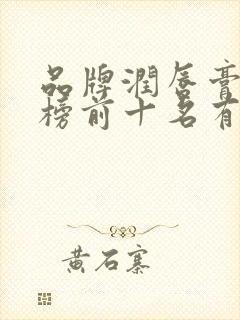 品牌润唇膏
榜前十名有
黄石寨